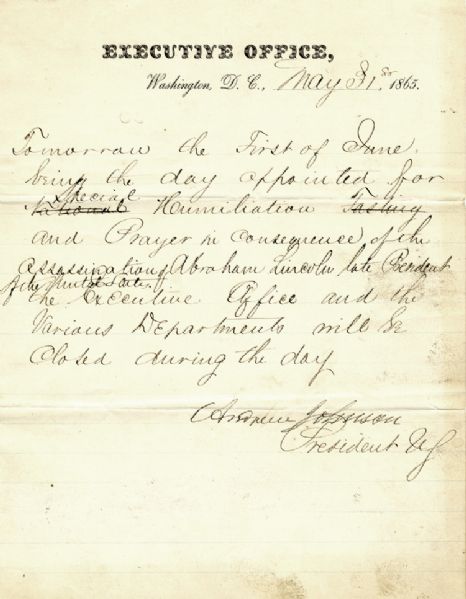 EXECUTIVE OFFICE,
Washington, D. C., May 31st 1865.
Tomorrow the First of June
being the day appointed for
special
national Humiliation Fasting
and Prayer in consequence of the
assassination of Abraham Lincoln late President
of the United States
the Executive Office and the
Various Departments will be
Closed during the day
Andrew Johnson
President US